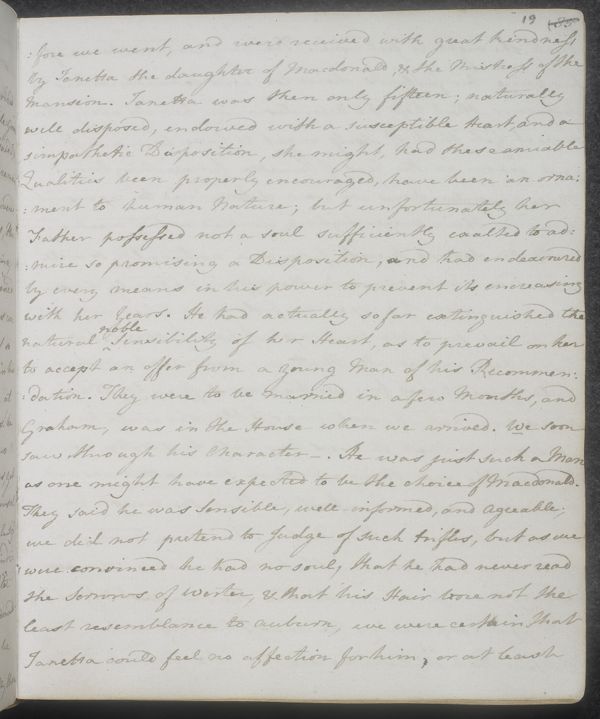 19 185
:fore we went, and were received with great kindness
by Janetta the daughter of Macdonald, & the Mistress of the
Mansion. Janetta was then only fifteen; naturally
well disposed, endowed with a susceptible Heart, and a
simpathetic Disposition, she might, had these amiable
Qualities been properly encouraged, have been an orna:
:ment to human Nature; but unfortunately her
Father possessed not a soul sufficiently exalted to ad:
:mire so promising a Disposition, and had endeavoured
by every means in his power to prevent its encreasing
with her Years. He had actually so far extinguished the
natural noble Sensibility of her Heart, as to prevail on her
to accept an offer from a young Man of his Recommen:
:dation. They were to be married in a few Months, and
Graham, was in the House when we arrived. We soon
saw through his Character—. He was just such a Man
as one might have expected to be the choice of Macdonald.
They said he was Sensible, well-informed, and Agreable;
we did not pretend to Judge of such trifles, but as we
were convinced he had no soul, that he had never read
the Sorrows of Werter, & that his Hair bore not the
least resemblance to auburn, we were certain that
Janetta could feel no affection for him, or at least